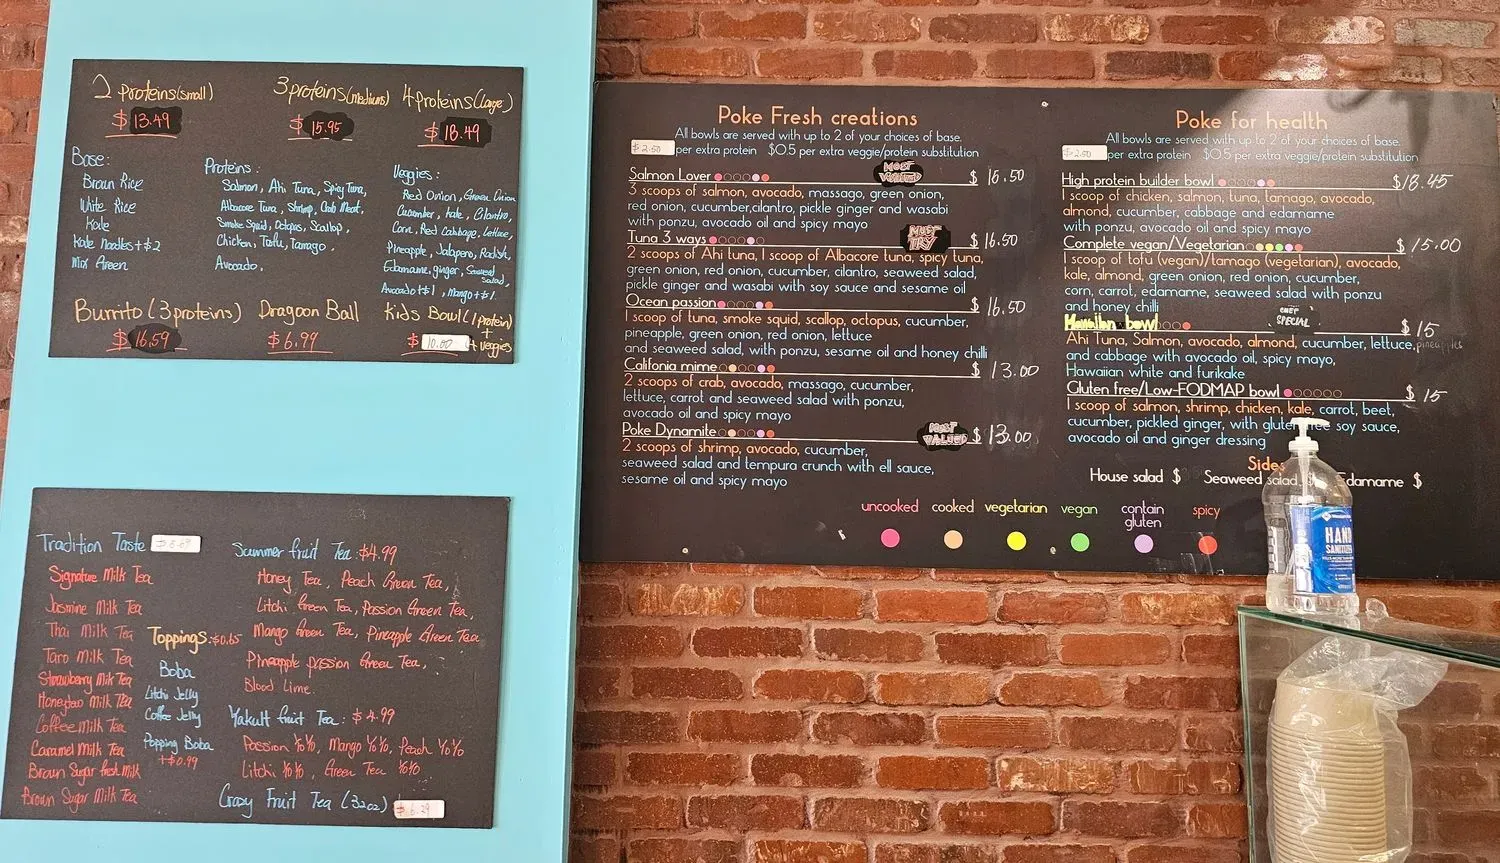 2 proteins(small)
$ 13.49
3 proteins(medium)
$ 15.95
4 proteins(large)
$ 18.49
Base:
Brown Rice
White Rice
Kale
Kale Noodles+$2
Mix Green
Proteins:
Salmon, Ahi Tuna, Spicy Tuna,
Albacore Tuna, Shrimp, Crab Meat,
Smoke Squid, Octopus, Scallop,
Chicken, Tofu, Tamago,
Avocado,
Veggies:
Red Onion, Green Onion
Cucumber, Kale, Cilantro,
Corn, Red Cabbage, Lettuce,
Pineapple, Jalapeno, Radish,
Edamame, ginger, Seaweed Salad,
Avocado+$1, Mango+$1
Burrito (3 proteins)
$ 16.59
Dragoon Ball
$ 6.99
Kids Bowl (1 protein)
+
$ 10.50 4 veggies
Tradition Taste
Signature Milk Tea
Jasmine Milk Tea
Thai Milk Tea
Taro Milk Tea
Strawberry Milk Tea
Honeydew Milk Tea
Coffee Milk Tea
Caramel Milk Tea
Brown Sugar fresh Milk
Brown Sugar Milk Tea
Toppings: $0.65
Boba
Litchi Jelly
Coffee Jelly
Popping Boba
+$0.99
Summer fruit Tea: $4.99
Honey Tea, Peach Green Tea,
Litchi Green Tea, Passion Green Tea,
Mango Green Tea, Pineapple Green Tea
Pineapple passion Green Tea,
Blood Lime.
Yakult fruit Tea: $4.99
Passion %%, Mango %%, Peach %%
Litchi %%, Green Tea %%
Crazy Fruit Tea (32oz) $ 6.29
Poke Fresh creations
All bowls are served with up to 2 of your choices of base.
$ 2.50 per extra protein $0.5 per extra veggie/protein substitution
Salmon Lover MOST $ 16.50
3 scoops of salmon, avocado, massago, green onion,
red onion, cucumber,cilantro, pickle ginger and wasabi
with ponzu, avocado oil and spicy mayo
Tuna 3 ways MUST TRY $ 16.50
2 scoops of Ahi tuna, 1 scoop of Albacore tuna, spicy tuna,
green onion, red onion, cucumber, cilantro, seaweed salad,
pickle ginger and wasabi with soy sauce and sesame oil
Ocean passion $ 16.50
1 scoop of tuna, smoke squid, scallop, octopus, cucumber,
pineapple, green onion, red onion, lettuce
and seaweed salad, with ponzu, sesame oil and honey chilli
Califonia mime $ 13.00
2 scoops of crab, avocado, massago, cucumber,
lettuce, carrot and seaweed salad with ponzu,
avocado oil and spicy mayo
Poke Dynamite MOST VALUED $ 13.00
2 scoops of shrimp, avocado, cucumber,
seaweed salad and tempura crunch with ell sauce,
sesame oil and spicy mayo
Poke for health
All bowls are served with up to 2 of your choices of base.
$ 2.50 per extra protein $0.5 per extra veggie/protein substitution
High protein builder bowl $18.45
1 scoop of chicken, salmon, tuna, tamago, avocado,
almond, cucumber, cabbage and edamame
with ponzu, avocado oil and spicy mayo
Complete vegan/Vegetarian $ 15.00
1 scoop of tofu (vegan)/tamago (vegetarian), avocado,
kale, almond, green onion, red onion, cucumber,
corn, carrot, edamame, seaweed salad with ponzu
and honey chilli
Hawaiian bowl CHEF SPECIAL $ 15
Ahi Tuna, Salmon, avocado, almond, cucumber, lettuce, pineapples
and cabbage with avocado oil, spicy mayo,
Hawaiian white and furikake
Gluten free/Low-FODMAP bowl $ 15
1 scoop of salmon, shrimp, chicken, kale, carrot, beet,
cucumber, pickled ginger, with gluten free soy sauce,
avocado oil and ginger dressing
Sides
House salad $ Seaweed salad $ Edamame $
uncooked cooked vegetarian vegan contain gluten spicy
HAND
SANITIZER